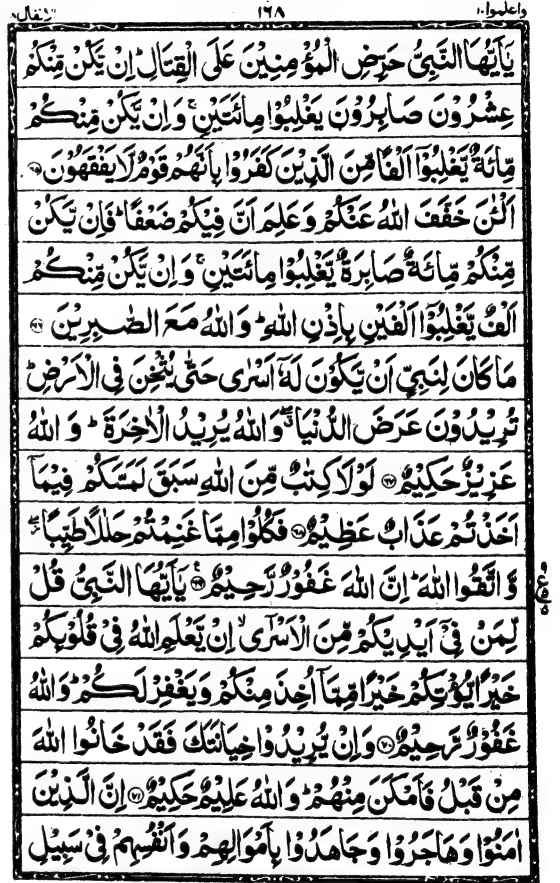 واعلموا ١٠ ١٦٨ الانفال ٨
يٰۤاَيُّهَا النَّبِيُّ حَرِّضِ الْمُؤْمِنِيْنَ عَلَى الْقِتَالِ ؕ اِنْ يَّكُنْ مِّنْكُمْ
عِشْرُوْنَ صَابِرُوْنَ يَغْلِبُوْا مِائَتَيْنِ ۚ وَاِنْ يَّكُنْ مِّنْكُمْ
مِّائَةٌ يَّغْلِبُوْۤا اَلْفًا مِّنَ الَّذِيْنَ كَفَرُوْا بِاَنَّهُمْ قَوْمٌ لَّا يَفْقَهُوْنَ ﴿۶۵﴾
اَلْـٰٔنَ خَفَّفَ اللّٰهُ عَنْكُمْ وَعَلِمَ اَنَّ فِيْكُمْ ضَعْفًا ؕ فَاِنْ يَّكُنْ
مِّنْكُمْ مِّائَةٌ صَابِرَةٌ يَّغْلِبُوْا مِائَتَيْنِ ۚ وَاِنْ يَّكُنْ مِّنْكُمْ
اَلْفٌ يَّغْلِبُوْۤا اَلْفَيْنِ بِاِذْنِ اللّٰهِ ؕ وَاللّٰهُ مَعَ الصّٰبِرِيْنَ ﴿۶۶﴾
مَا كَانَ لِنَبِيٍّ اَنْ يَّكُوْنَ لَهٗۤ اَسْرٰى حَتّٰى يُثْخِنَ فِى الْاَرْضِ ؕ
تُرِيْدُوْنَ عَرَضَ الدُّنْيَا ۖۗ وَاللّٰهُ يُرِيْدُ الْاٰخِرَةَ ؕ وَ اللّٰهُ
عَزِيْزٌ حَكِيْمٌ ﴿۶۷﴾ لَوْلَا كِتٰبٌ مِّنَ اللّٰهِ سَبَقَ لَمَسَّكُمْ فِيْمَاۤ
اَخَذْتُمْ عَذَابٌ عَظِيْمٌ ﴿۶۸﴾ فَكُلُوْا مِمَّا غَنِمْتُمْ حَلٰلًا طَيِّبًا ۖؗ
وَّاتَّقُوا اللّٰهَ ؕ اِنَّ اللّٰهَ غَفُوْرٌ رَّحِيْمٌ ﴿۶۹﴾ يٰۤاَيُّهَا النَّبِيُّ قُلْ
لِّمَنْ فِيْۤ اَيْدِيْكُمْ مِّنَ الْاَسْرٰٓى ۙ اِنْ يَّعْلَمِ اللّٰهُ فِيْ قُلُوْبِكُمْ
خَيْرًا يُّؤْتِكُمْ خَيْرًا مِّمَّاۤ اُخِذَ مِنْكُمْ وَيَغْفِرْ لَكُمْ ؕ وَاللّٰهُ
غَفُوْرٌ رَّحِيْمٌ ﴿۷۰﴾ وَاِنْ يُّرِيْدُوْا خِيَانَتَكَ فَقَدْ خَانُوا اللّٰهَ
مِنْ قَبْلُ فَاَمْكَنَ مِنْهُمْ ؕ وَاللّٰهُ عَلِيْمٌ حَكِيْمٌ ﴿۷۱﴾ اِنَّ الَّذِيْنَ
اٰمَنُوْا وَهَاجَرُوْا وَجَاهَدُوْا بِاَمْوَالِهِمْ وَاَنْفُسِهِمْ فِيْ سَبِيْلِ